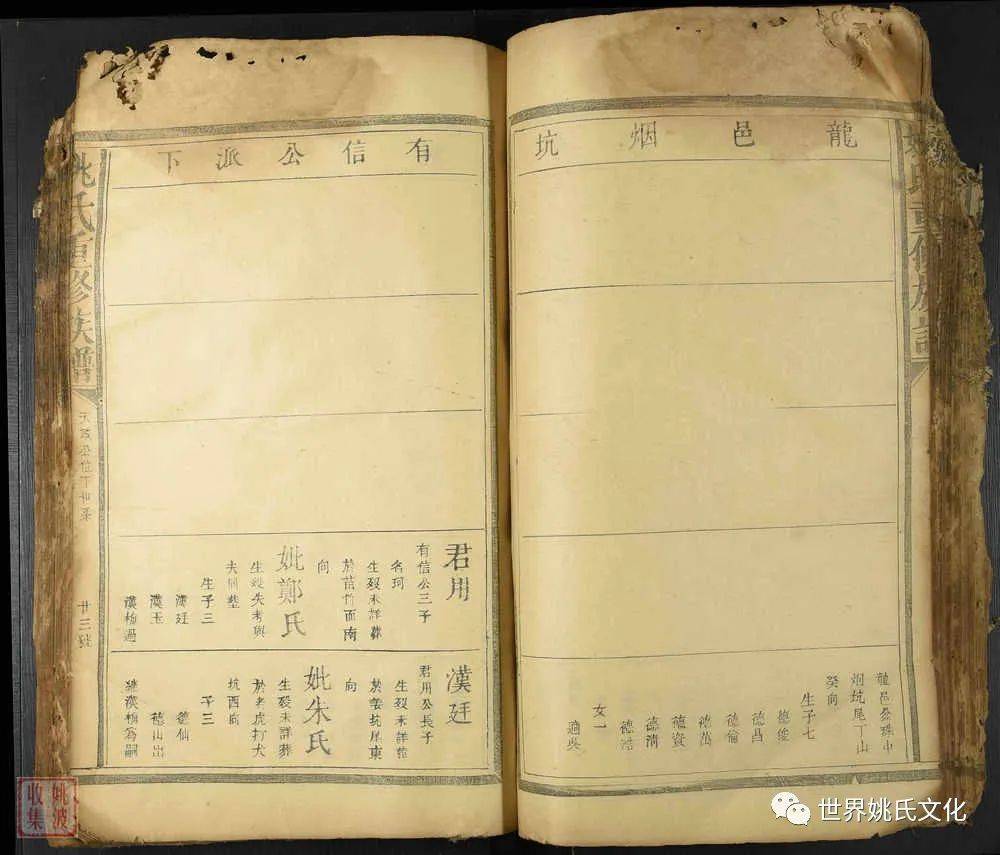 龍邑烟坑
龍邑
烟坑尾丁山
癸向
生子七
德俊
德昌
德倫
德萬
德資
德清
德
女一
適吳
有信公派下
君用
有信公三子
名珂
生歿未詳葬
於茴竹面南
向
妣鄭氏
生歿失考與
夫同塋
生子三
漢廷
漢玉
漢柏過
漢廷
君用公長子
生歿未詳葬
於姜坑尾東
向
妣朱氏
生歿未詳葬
於老虎打犬
坑西向
子三
德仙
德山出
繼漢柏為嗣
姚氏重修族譜
廿三
姚氏重修族譜
姚波
收集
世界姚氏文化